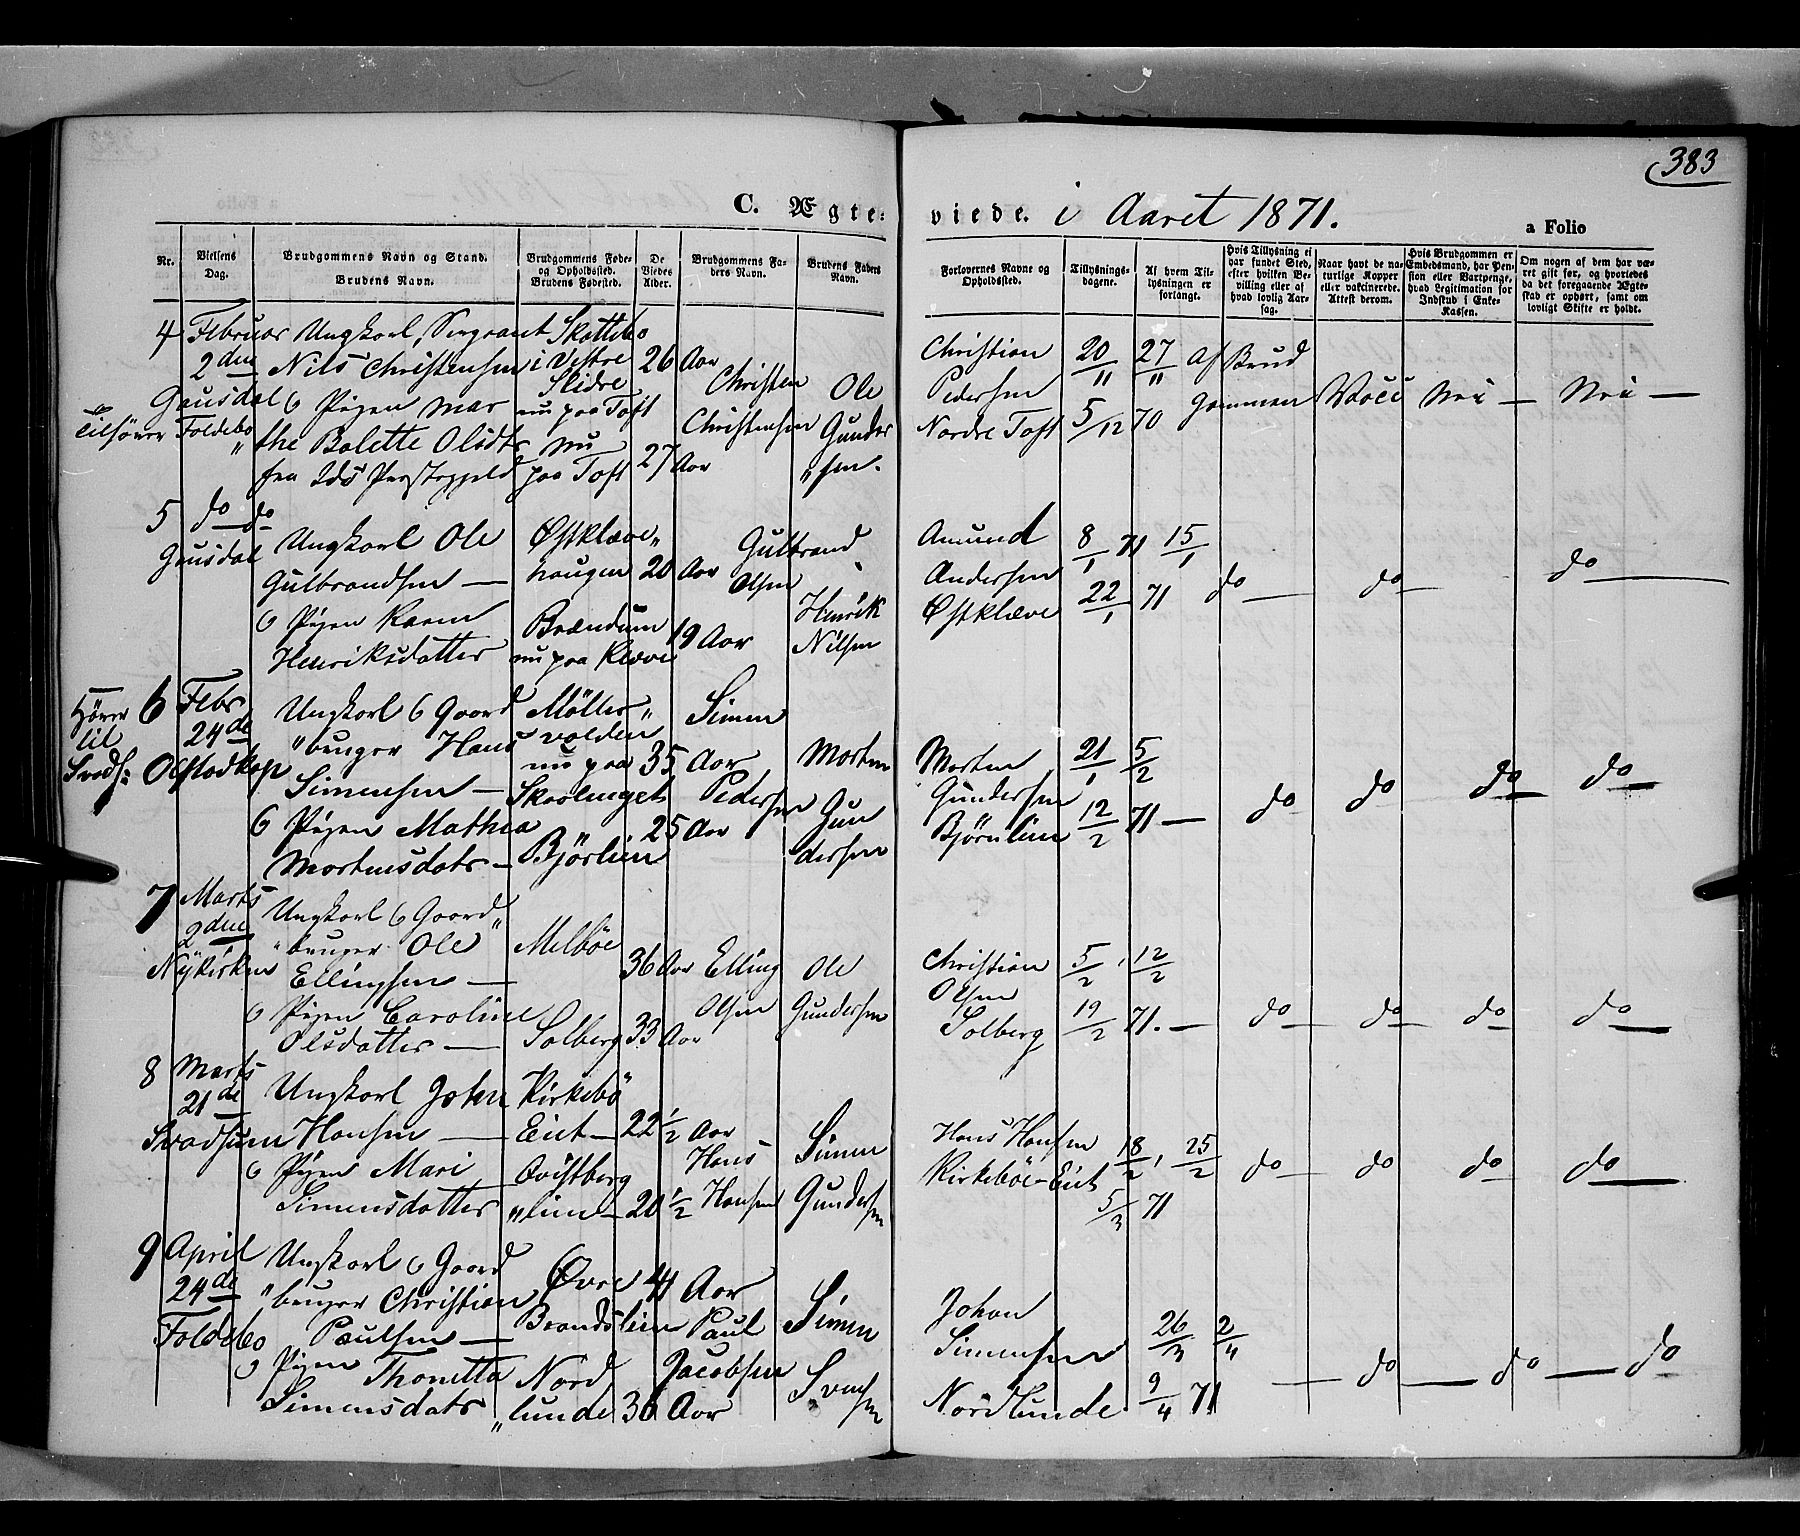 383
C. Ægte- viede. i Aaret 1871.
a Folio
Nr.
Vielsens Dag.
Brudgommens Navn og Stand. Brudens Navn.
Brudgommens Føde- og Opholdssted. Brudens Fødested.
De Viedes Alder.
Brudgommens Faders Navn.
Brudens Faders Navn.
Forlovernes Navne og Opholdssted.
Tillysnings-dagene.
Af hvem Tillysningen er forlangt.
Hvis Tillysning ei har fundet Sted, efter hvilken Bevilling eller af hvad lovlig Aarsag.
Naar havt de naturlige Kopper eller vakcinerede. Attest derom.
Hvis Brudgommen er Embedsmand, har Pension eller Vartpenge, hvad Legitimation for Indskud i Enke-Kassen.
Om nogen af dem har været gift før, og hvorledes da det foregaaende Ægteskab er ophørt, samt om lovligt Skifte er holdt.
4 Februar 2den Gausdal
Tilhører Foldebo
Ungkarl, Sergeant
Nils Christensen
& Pigen Mar
the Bolette Olsdtr
fra
Skattebo
i Vestre
Slidre
nu paa Toft
nu
paa Toft
26 Aar
27 Aar
Christen
Christensen
Ole
Gunder
"sen.
Christian
Pedersen
Nordre Toft
20/11 27/11
5/12 70
af Brud
gommen
Vacc
Nei —
Nei —
5 do do
Gausdal
Ungkarl Ole
Gulbrandsen —
& Pigen Karen
Henriksdatter
Østklæve"
haugen
Brændum
nu paa Klæve
20 Aar
19 Aar
Gulbrand
Olsen
Henrik
Nilsen
Amund
Andersen
Østklæve
8/1 71 15/1
22/1 71
do —
do —
do —
Hører
til
Svads:
6 Febr
24de
Olstadkap
Ungkarl & Gaard
"bruger Hans
Simensen —
& Pigen Mathea
Mortensdatr —
Møller"
volden
nu paa
Skaalenget
Bjørlien
35 Aar
25 Aar
Simen
Pedersen
Morten
Gun
dersen
Morten
Gundersen
Bjørnlien
21/1 5/2
12/2 71 —
do
do
do
do —
7 Marts
2den
Nykirken
Ungkarl & Gaard"
"bruger Ole
Ellingsen —
& Pigen Caroline
Olsdatter —
Melbøe
Solberg
36 Aar
33 Aar
Elling
Olsen
Ole
Gundersen
Christian
Olsen
Solberg
5/2, 12/2
19/2 71. —
do —
do —
do
do —
8 Marts
21de
Svadsum
Ungkarl John
Hansen —
& Pigen Mari
Simensdatter
Kirkebö
Eiet —
Qvistberg
"lien —
22 1/2 Aar
20 1/2
Hans
Hansen
Simen
Gundersen
Hans Hansen
Kirkebøe-Eiet
18/2, 25/2
5/3 71
do —
do
do —
do —
9 April
24de
Foldebo
Ungkarl & Gaard
"bruger Christian
Paulsen —
& Pigen
Thonetta
Simensdatr
Øvre
Brandslien
Nord
"lunde
41 Aar
36 Aar
Paul
Jacobsen
Simen
Svensen
Johan
Simensen
Nordlunde
26/3 2/4
9/4 71
— do —
do —
do